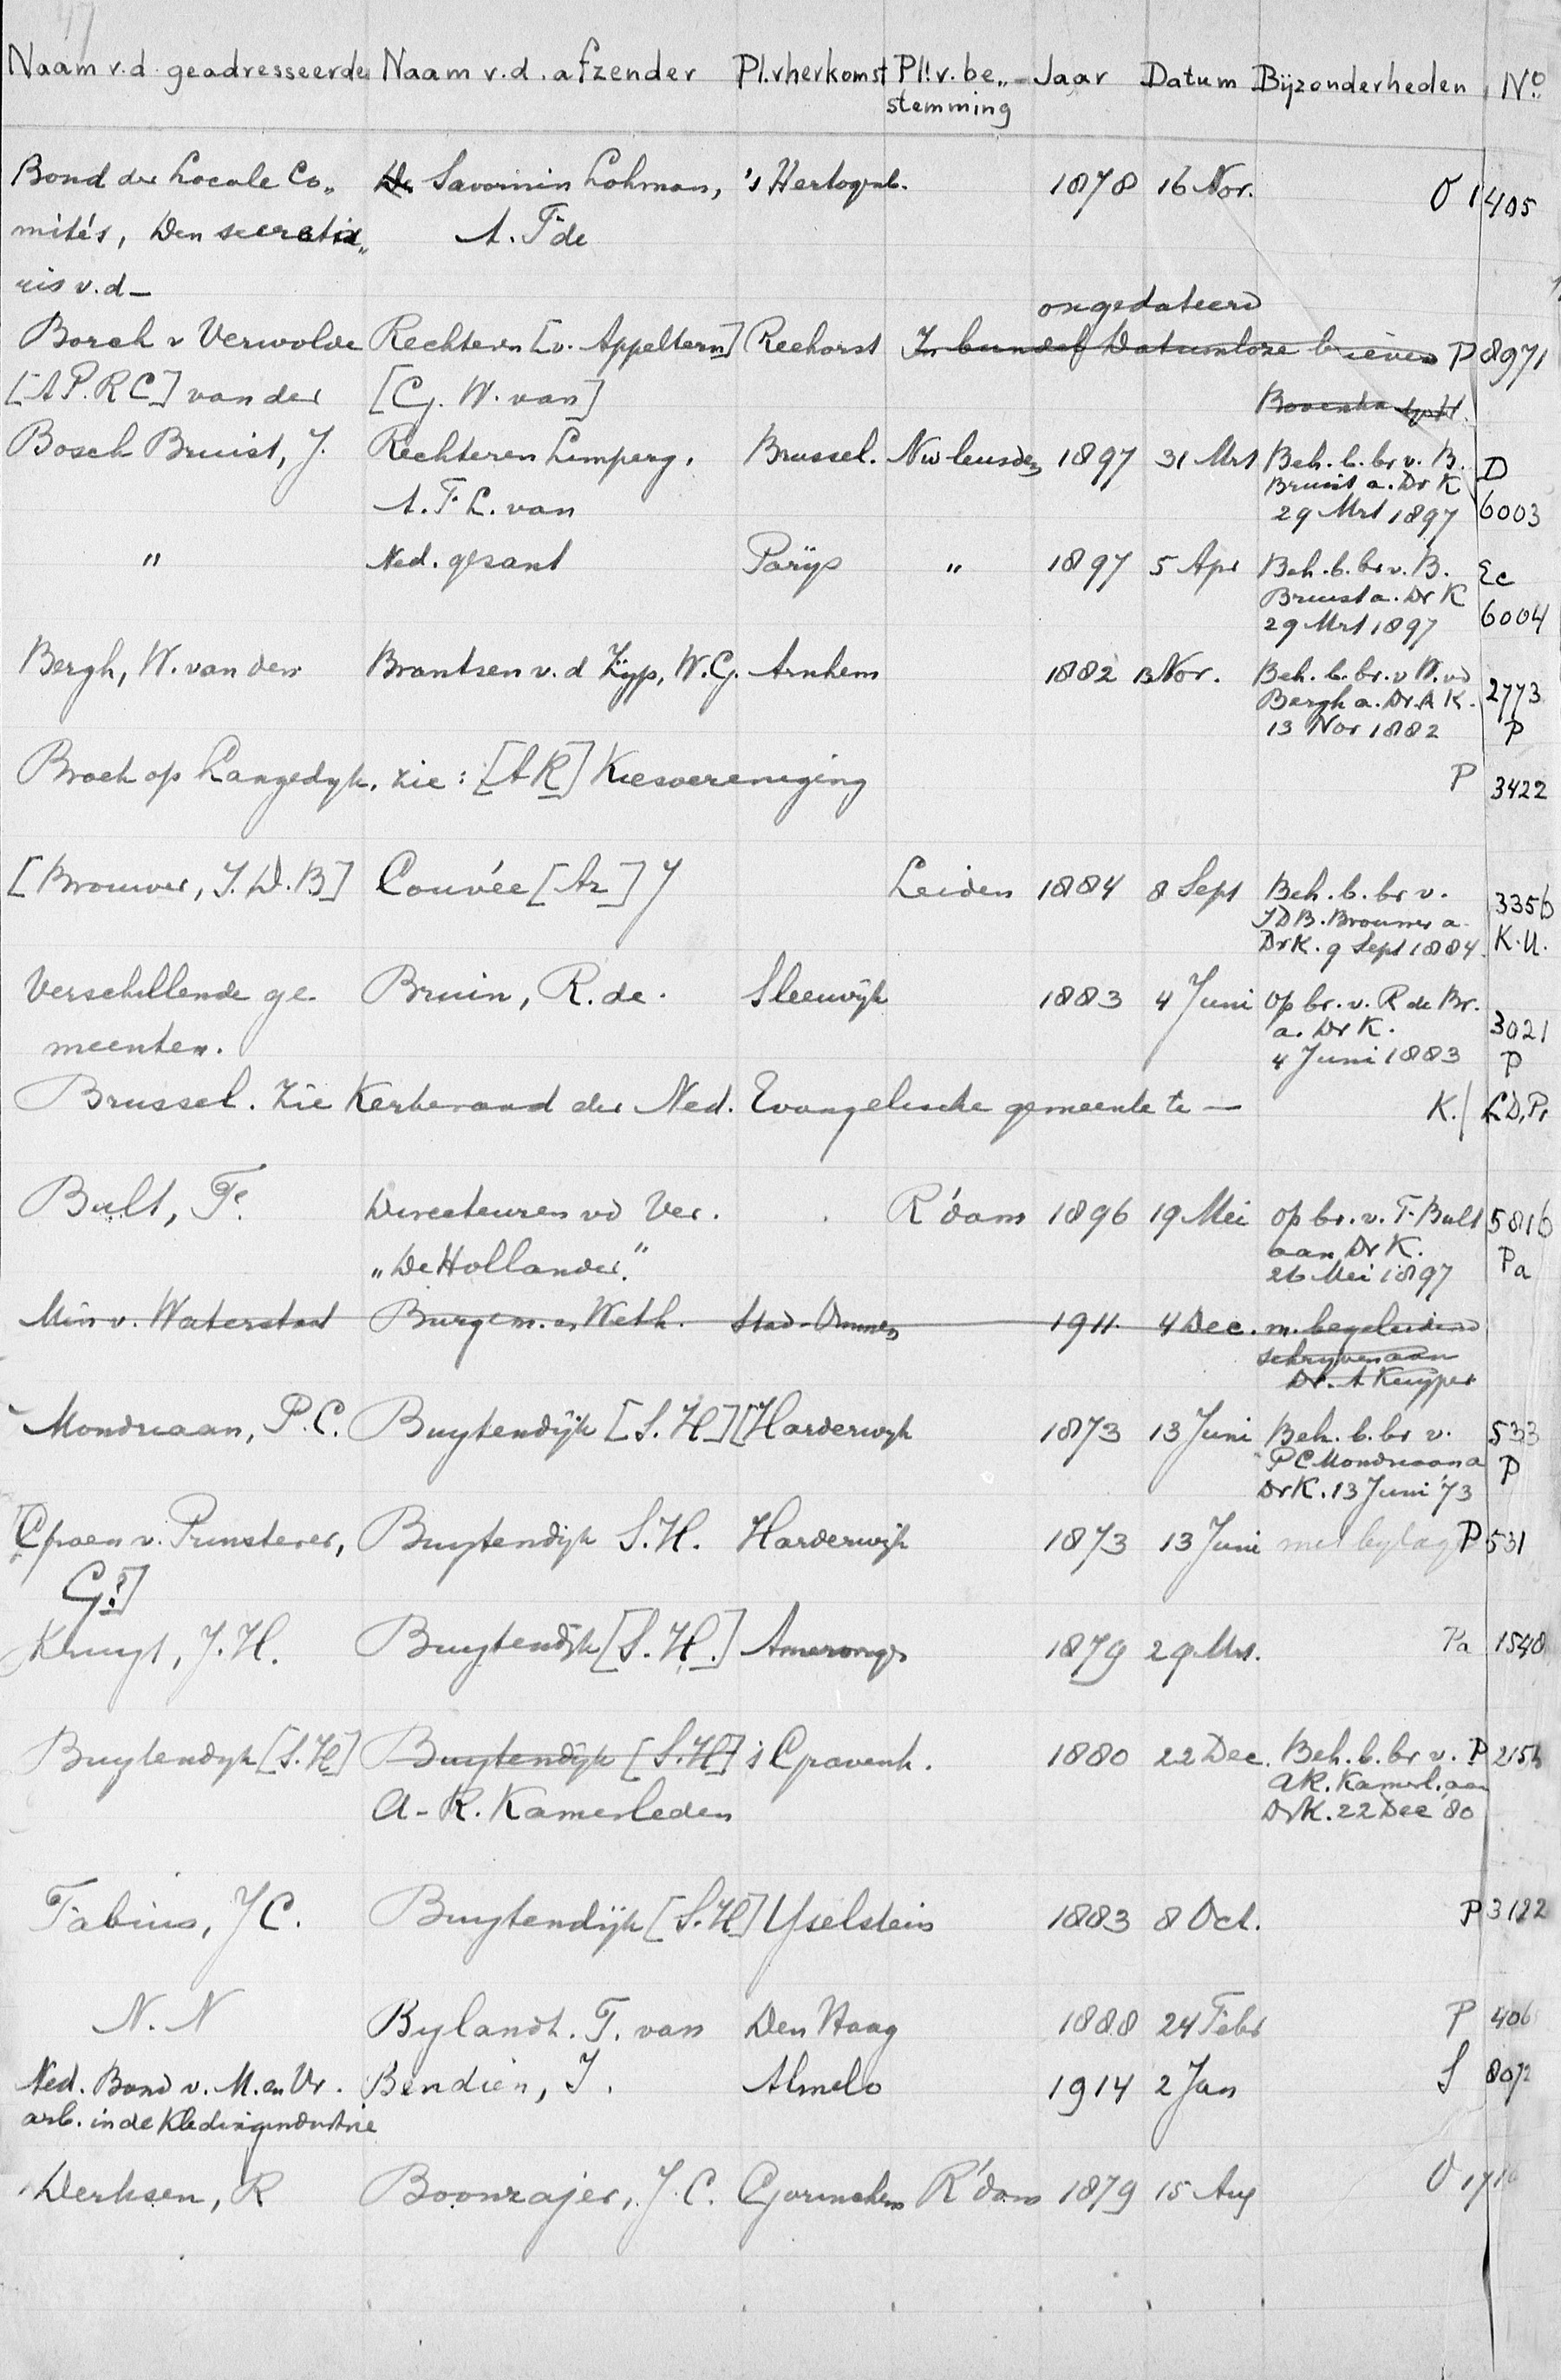 47
Naam v.d. geadresseerde Naam v.d. afzender Pl. v herkomst Pl. v. be„ Jaar Datum Bijzonderheden No
stemming
Bond der Locale Co„ De Savornin Lohman, 's Hertogenb. 1878 16 Nov. O 1405
mité's, Den secreta„ A. F de
ris v.d—
ongedateerd
Borch v Verwolde Rechteren [v. Appeltern] Reehorst In bundel Datumloze brieven P 8971
[A P. R C] van der [G. W. van]
Bosch Bruist, J. Rechteren Limperg, Brussel. Nw leusden 1897 31 Mrt Beh. b. br v. B. D
A. F. L. van Bruist a. Dr K
29 Mrt 1897 6003
" Ned. gezant Parijs " 1897 5 Apr Beh. b. br v. B. Ec
Bruist a. Dr K
29 Mrt 1897 6004
Bergh, W. van den Brantsen v. d Zijp, W. G. Arnhem 1882 13 Nov. Beh. b. br. v W. vd 2773
Bergh a. Dr. A K.
13 Nov 1882 P
Broek op Langedijk, zie: [A R] Kiesvereniging P 3422
[Brouwer, J. D. B] Couvée [Az] J Leiden 1884 8 Sept Beh. b. br v. 3356
J D B. Brouwer a.
Dr K. 9 Sept 1884. K. U.
Verschillende ge- Bruin, R. de. Sleeuwijk 1883 4 Juni op br. v. R de Br.
meenten. a. Dr K. 3021
4 Juni 1883 P
Brussel. Zie Kerkeraad der Ned. Evangelische gemeente te — K. / L D, Pr
Bult, F. Directeuren vd Ver. R'dam 1896 19 Mei op br. v. F. Bult 5816
„De Hollander." aan Dr K. Pa
26 Mei 1897
Min v. Waterstaat Burgem. en Weth. Stad-Ommen 1911 4 Dec. m. begeleidend
schrijven aan
Dr. A Kuyper
Mondriaan, P. C. Buytendijk [S. H] [Harderwijk 1873 13 Juni Beh. b. br v. 533
P C Mondriaan a P
Dr K. 13 Juni '73
[Groen v. Prinsterer, Buytendijk S. H. Harderwijk 1873 13 Juni met bijlage P 531
G?]
Kruyt, J. H. Buytendijk [S. H.] Amerongen 1879 29 Mrt. Pa 1540
Buytendijk [S. H] Buytendijk [S. H] 's Gravenh. 1880 22 Dec. Beh. b. br v. P 215
A-R. Kamerleden A R. Kamerl. aan
Dr K. 22 Dec '80
Fabius, J C. Buytendijk [S. H] Yselstein 1883 8 Oct. P 3122
N. N Bylandt. F. van Den Haag 1888 24 Febr P 406
Ned. Bond v. M. en Vr. Bendien, J. Almelo 1914 2 Jan S 8072
arb. in de Kledingindustrie
Derksen, R Boonzajer, J. C. Gorinchem R'dam 1879 15 Aug O 17